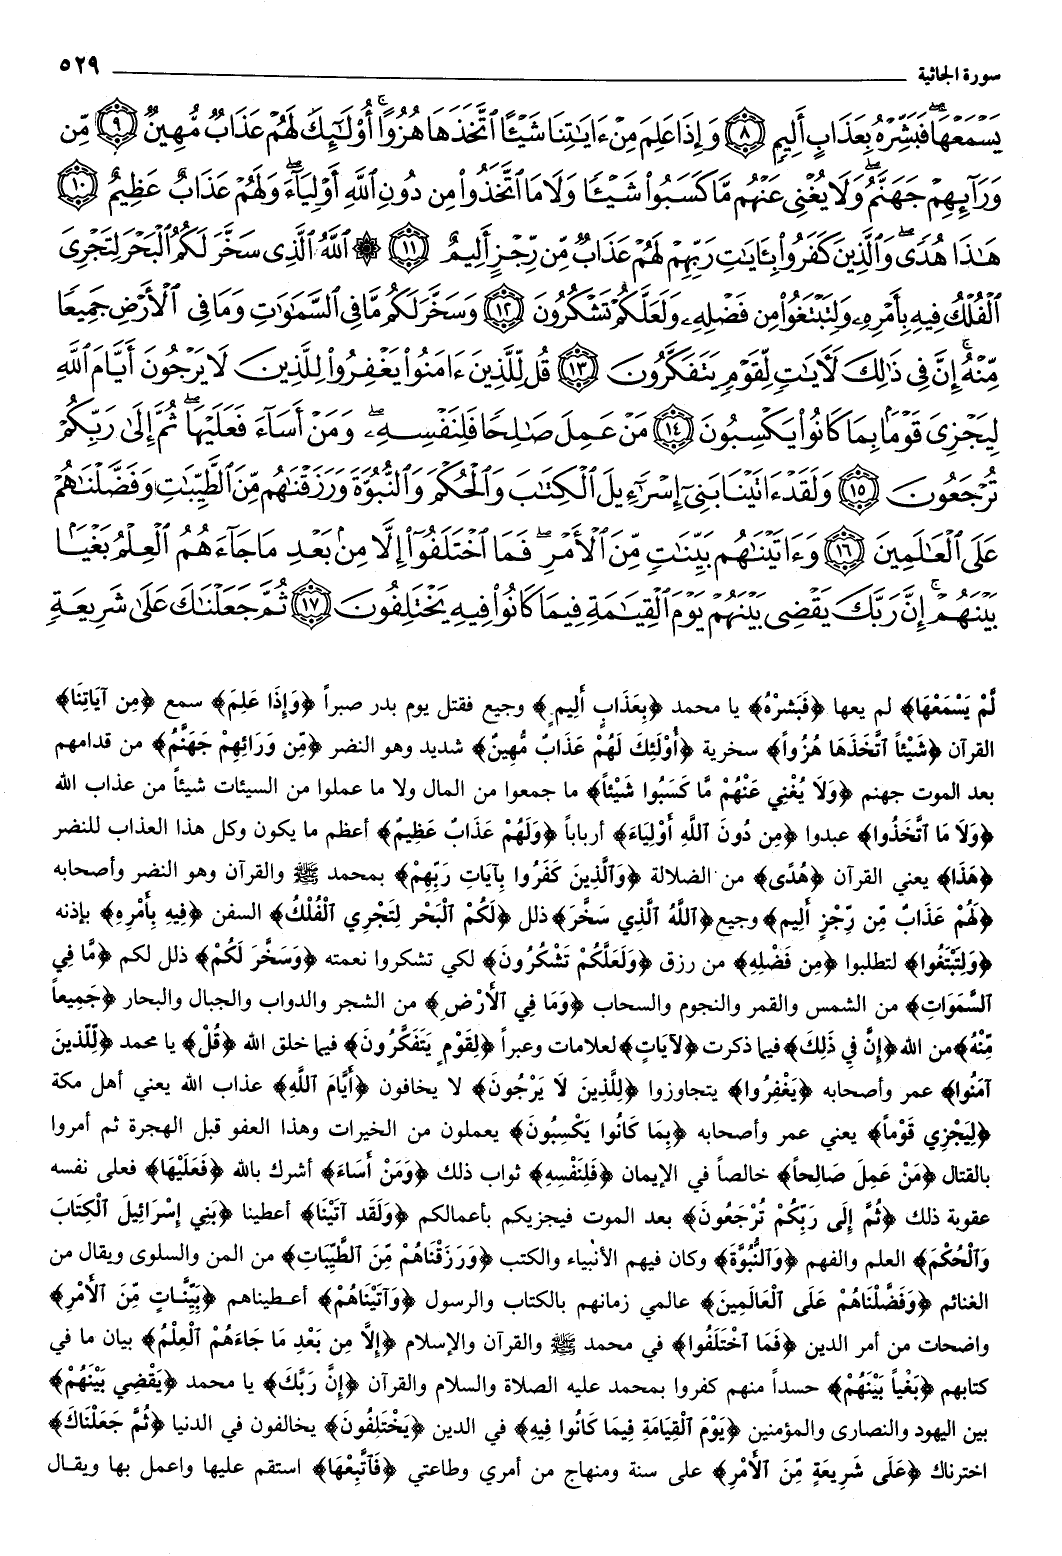 سورة الجاثية ٥٢٩
يَسْمَعْهَا فَبَشِّرْهُ بِعَذَابٍ أَلِيمٍ ٨ وَإِذَا عَلِمَ مِنْ ءَايَٰتِنَا شَيْـًٔا ٱتَّخَذَهَا هُزُوًا ۚ أُو۟لَٰٓئِكَ لَهُمْ عَذَابٌ مُّهِينٌ ٩ مِّن
وَرَآئِهِمْ جَهَنَّمُ ۖ وَلَا يُغْنِى عَنْهُم مَّا كَسَبُوا۟ شَيْـًٔا وَلَا مَا ٱتَّخَذُوا۟ مِن دُونِ ٱللَّهِ أَوْلِيَآءَ ۖ وَلَهُمْ عَذَابٌ عَظِيمٌ ١٠
هَٰذَا هُدًى ۖ وَٱلَّذِينَ كَفَرُوا۟ بِـَٔايَٰتِ رَبِّهِمْ لَهُمْ عَذَابٌ مِّن رِّجْزٍ أَلِيمٌ ١١ ۞ ٱللَّهُ ٱلَّذِى سَخَّرَ لَكُمُ ٱلْبَحْرَ لِتَجْرِىَ
ٱلْفُلْكُ فِيهِ بِأَمْرِهِۦ وَلِتَبْتَغُوا۟ مِن فَضْلِهِۦ وَلَعَلَّكُمْ تَشْكُرُونَ ١٢ وَسَخَّرَ لَكُم مَّا فِى ٱلسَّمَٰوَٰتِ وَمَا فِى ٱلْأَرْضِ جَمِيعًا
مِّنْهُ ۚ إِنَّ فِى ذَٰلِكَ لَءَايَٰتٍ لِّقَوْمٍ يَتَفَكَّرُونَ ١٣ قُل لِّلَّذِينَ ءَامَنُوا۟ يَغْفِرُوا۟ لِلَّذِينَ لَا يَرْجُونَ أَيَّامَ ٱللَّهِ
لِيَجْزِىَ قَوْمًۢا بِمَا كَانُوا۟ يَكْسِبُونَ ١٤ مَنْ عَمِلَ صَٰلِحًا فَلِنَفْسِهِۦ ۖ وَمَنْ أَسَآءَ فَعَلَيْهَا ۖ ثُمَّ إِلَىٰ رَبِّكُمْ
تُرْجَعُونَ ١٥ وَلَقَدْ ءَاتَيْنَا بَنِىٓ إِسْرَٰٓءِيلَ ٱلْكِتَٰبَ وَٱلْحُكْمَ وَٱلنُّبُوَّةَ وَرَزَقْنَٰهُم مِّنَ ٱلطَّيِّبَٰتِ وَفَضَّلْنَٰهُمْ
عَلَى ٱلْعَٰلَمِينَ ١٦ وَءَاتَيْنَٰهُم بَيِّنَٰتٍ مِّنَ ٱلْأَمْرِ ۖ فَمَا ٱخْتَلَفُوٓا۟ إِلَّا مِنۢ بَعْدِ مَا جَآءَهُمُ ٱلْعِلْمُ بَغْيًۢا
بَيْنَهُمْ ۚ إِنَّ رَبَّكَ يَقْضِى بَيْنَهُمْ يَوْمَ ٱلْقِيَٰمَةِ فِيمَا كَانُوا۟ فِيهِ يَخْتَلِفُونَ ١٧ ثُمَّ جَعَلْنَٰكَ عَلَىٰ شَرِيعَةٍ
لَّمْ يَسْمَعْهَا﴾ لم يعها ﴿فَبَشِّرْهُ﴾ يا محمد ﴿بِعَذَابٍ أَلِيمٍ﴾ وجيع فقتل يوم بدر صبراً ﴿وَإِذَا عَلِمَ﴾ سمع ﴿مِن آيَاتِنَا﴾
القرآن ﴿شَيْئاً ٱتَّخَذَهَا هُزُواً﴾ سخرية ﴿أُوْلَئِكَ لَهُمْ عَذَابٌ مُّهِينٌ﴾ شديد وهو النضر ﴿مِّن وَرَائِهِمْ جَهَنَّمُ﴾ من قدامهم
بعد الموت جهنم ﴿وَلَا يُغْنِي عَنْهُمْ مَّا كَسَبُوا شَيْئاً﴾ ما جمعوا من المال ولا ما عملوا من السيئات شيئاً من عذاب الله
﴿وَلَا مَا ٱتَّخَذُوا﴾ عبدوا ﴿مِن دُونَ ٱللَّهِ أَوْلِيَاءَ﴾ أرباباً ﴿وَلَهُمْ عَذَابٌ عَظِيمٌ﴾ أعظم ما يكون وكل هذا العذاب للنضر
﴿هَذَا﴾ يعني القرآن ﴿هُدًى﴾ من الضلالة ﴿وَٱلَّذِينَ كَفَرُوا بِآيَاتِ رَبِّهِمْ﴾ بمحمد ﷺ والقرآن وهو النضر وأصحابه
﴿لَهُمْ عَذَابٌ مِّن رِّجْزٍ أَلِيم﴾ وجيع ﴿ٱللَّهُ ٱلَّذِي سَخَّرَ﴾ ذلل ﴿لَكُمْ ٱلْبَحْر لِتَجْرِي ٱلْفُلْكُ﴾ السفن ﴿فِيهِ بِأَمْرِهِ﴾ بإذنه
﴿وَلِتَبْتَغُوا﴾ لتطلبوا ﴿مِن فَضْلِهِ﴾ من رزق ﴿وَلَعَلَّكُمْ تَشْكُرُونَ﴾ لكي تشكروا نعمته ﴿وَسَخَّرَ لَكُمْ﴾ ذلل لكم ﴿مَّا فِي
ٱلسَّمَوَاتِ﴾ من الشمس والقمر والنجوم والسحاب ﴿وَمَا فِي ٱلْأَرْضِ﴾ من الشجر والدواب والجبال والبحار ﴿جَمِيعاً
مِّنْهُ﴾ من الله ﴿إِنَّ فِي ذَلِكَ﴾ فيما ذكرت ﴿لآيَاتٍ﴾ لعلامات وعبراً ﴿لِقَوْمٍ يَتَفَكَّرُونَ﴾ فيما خلق الله ﴿قُلْ﴾ يا محمد ﴿لِّلَّذينَ
آمَنُوا﴾ عمر وأصحابه ﴿يَغْفِرُوا﴾ يتجاوزوا ﴿لِلَّذِينَ لَا يَرْجُونَ﴾ لا يخافون ﴿أَيَّامَ اللَّهِ﴾ عذاب الله يعني أهل مكة
﴿لِيَجْزِي قَوْماً﴾ يعني عمر وأصحابه ﴿بِمَا كَانُوا يَكْسِبُونَ﴾ يعملون من الخيرات وهذا العفو قبل الهجرة ثم أمروا
بالقتال ﴿مَنْ عَمِلَ صَالِحاً﴾ خالصاً في الإيمان ﴿فَلِنَفْسِهِ﴾ ثواب ذلك ﴿وَمَنْ أَسَاءَ﴾ أشرك بالله ﴿فَعَلَيْهَا﴾ فعلى نفسه
عقوبة ذلك ﴿ثُمَّ إِلَى رَبِّكُمْ تُرْجَعُونَ﴾ بعد الموت فيجزيكم بأعمالكم ﴿وَلَقَد آتَيْنَا﴾ أعطينا ﴿بَنِي إِسْرَائِيلَ ٱلْكِتَابَ
وَٱلْحُكْمَ﴾ العلم والفهم ﴿وَٱلنُّبُوَّةَ﴾ وكان فيهم الأنبياء والكتب ﴿وَرَزَقْنَاهُمْ مِّنَ ٱلطَّيِّبَاتِ﴾ من المن والسلوى ويقال من
الغنائم ﴿وَفَضَّلْنَاهُمْ عَلَى ٱلْعَالَمِينَ﴾ عالمي زمانهم بالكتاب والرسول ﴿وَآتَيْنَاهُمْ﴾ أعطيناهم ﴿بَيِّنَاتٍ مِّنَ ٱلْأَمْرِ﴾
واضحات من أمر الدين ﴿فَمَا ٱخْتَلَفُوا﴾ في محمد ﷺ والقرآن والإسلام ﴿إِلَّا مِن بَعْدِ مَا جَاءَهُمْ ٱلْعِلْمُ﴾ بيان ما في
كتابهم ﴿بَغْياً بَيْنَهُمْ﴾ حسداً منهم كفروا بمحمد عليه الصلاة والسلام والقرآن ﴿إِنَّ رَبَّكَ﴾ يا محمد ﴿يَقْضِي بَيْنَهُمْ﴾
بين اليهود والنصارى والمؤمنين ﴿يَوْمَ ٱلْقِيَامَةِ فِيمَا كَانُوا فِيهِ﴾ في الدين ﴿يَخْتَلِفُونَ﴾ يخالفون في الدنيا ﴿ثُمَّ جَعَلْنَاكَ﴾
اخترناك ﴿عَلَى شَرِيعَةٍ مِّنَ ٱلْأَمْرِ﴾ على سنة ومنهاج من أمري وطاعتي ﴿فَٱتَّبِعْهَا﴾ استقم عليها واعمل بها ويقال